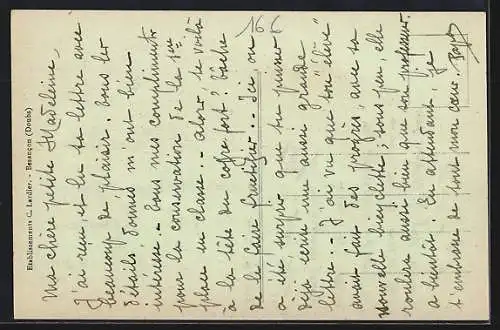 Etablissements C. Lardier. - Besançon (Doubs)
166
Ma chère petite Madeleine,
J'ai reçu, et lu ta lettre avec
beaucoup de plaisir. Tous les
détails donnés m'ont bien
intéressé. Tous mes compliments
pour la conservation de la 1ère
place en classe. Alors, te voilà
à la tête du coffre fort? Tâche
de le faire fructifier. Ici on
a été surpris que tu puisses
déjà écrire une aussi grande
lettre. J'ai vu que ton élève
avait fait des progrès, avec sa
nouvelle bicyclette; sous peu, elle
roulera aussi bien que son professeur.
A bientôt. En attendant, je
t'embrasse de tout mon cœur.